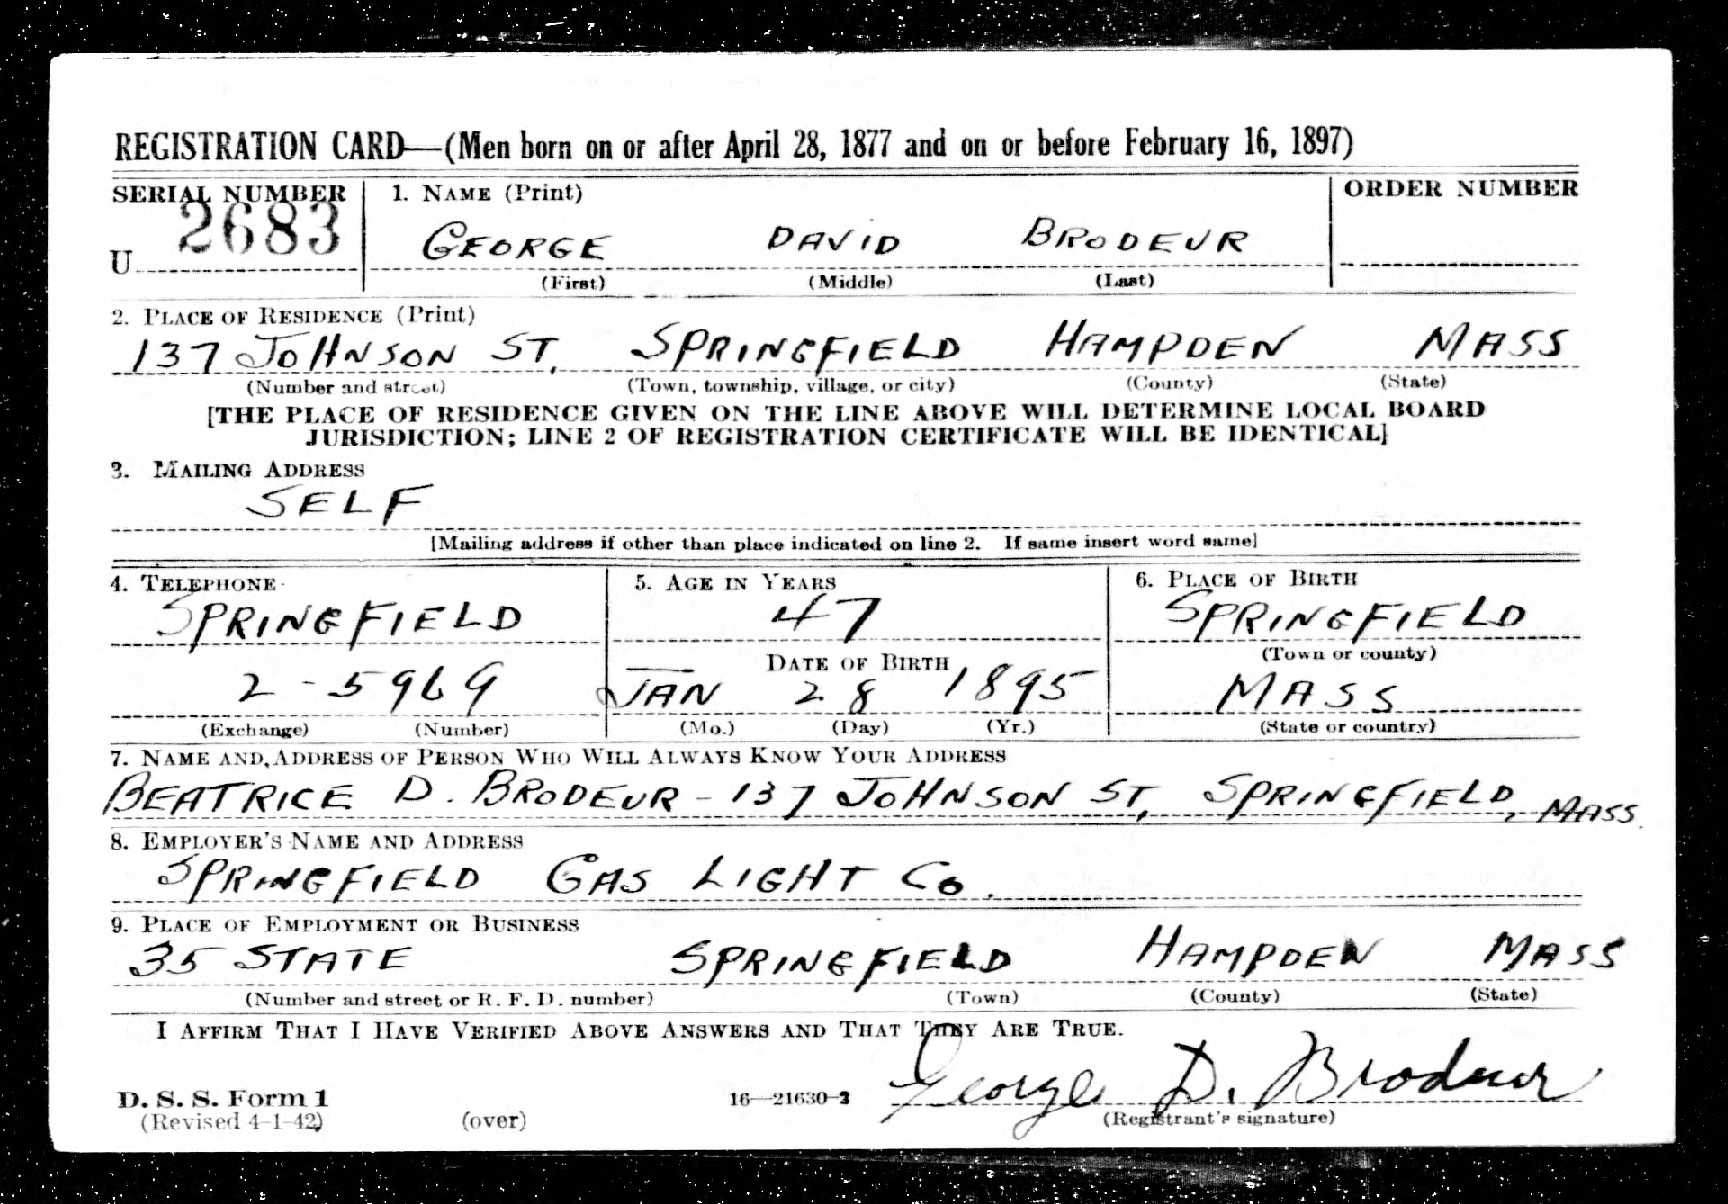 REGISTRATION CARD—(Men born on or after April 28, 1877 and on or before February 16, 1897)
SERIAL NUMBER 1. NAME (Print) ORDER NUMBER
U 2683 GEORGE DAVID BRODEUR
(First) (Middle) (Last)
2. PLACE OF RESIDENCE (Print)
137 JOHNSON ST, SPRINGFIELD HAMPDEN MASS
(Number and street) (Town, township, village, or city) (County) (State)
[THE PLACE OF RESIDENCE GIVEN ON THE LINE ABOVE WILL DETERMINE LOCAL BOARD
JURISDICTION; LINE 2 OF REGISTRATION CERTIFICATE WILL BE IDENTICAL]
3. MAILING ADDRESS
SELF
[Mailing address if other than place indicated on line 2. If same insert word same]
4. TELEPHONE 5. AGE IN YEARS 6. PLACE OF BIRTH
SPRINGFIELD 47 SPRINGFIELD
DATE OF BIRTH (Town or county)
2-5969 JAN 28 1895 MASS
(Exchange) (Number) (Mo.) (Day) (Yr.) (State or country)
7. NAME AND ADDRESS OF PERSON WHO WILL ALWAYS KNOW YOUR ADDRESS
BEATRICE D. BRODEUR - 137 JOHNSON ST, SPRINGFIELD, MASS.
8. EMPLOYER'S NAME AND ADDRESS
SPRINGFIELD GAS LIGHT Co.
9. PLACE OF EMPLOYMENT OR BUSINESS
35 STATE SPRINGFIELD HAMPDEN MASS
(Number and street or R. F. D. number) (Town) (County) (State)
I AFFIRM THAT I HAVE VERIFIED ABOVE ANSWERS AND THAT THEY ARE TRUE.
George D. Brodeur
D. S. S. Form 1 16—21630-2 (Registrant's signature)
(Revised 4-1-42) (over)